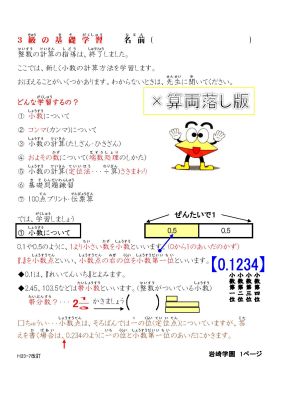 3級の基礎学習　名前(　　　　)
整数の計算の指導は、終了しました。
ここでは、新しく小数の計算方法を学習します。
おぼえることがいくつかあります。わからないときは、先生に聞いてください。
×算両落し版
どんな学習するの？
① 小数について
② コンマ(カンマ)について
③ 小数の計算(たしざん・ひきざん)
④ およその数について(端数処理のしかた)
⑤ 小数の計算(定位法・・・÷算ささまわり)
⑥ 基礎問題練習
⑦ 100点プリント・伝票算
では、学習しましょう
ぜんたいで1
① 小数について
0.5　0.5
0.1や0.5のように、1より小さい数を小数といいます。(0から1のあいだのかず)
『.』を小数点といい、小数点の右の位を小数第一位といいます。
【0.1234】
小数第一位
小数第二位
小数第三位
小数第四位
◆0.1は、『れいてんいち』とよみます。
◆2.45、103.5などは帯小数といいます。(整数がついている小数)
帯分数？・・・2 かきましょう(　　　　)
□ちゅうい…小数点は、そろばんでは一の位(定位点)についていますが、答
えを書く場合は、0.234のように一の位と小数第一位のあいだにかきます。
H23-7改訂
岩崎学園　1ページ